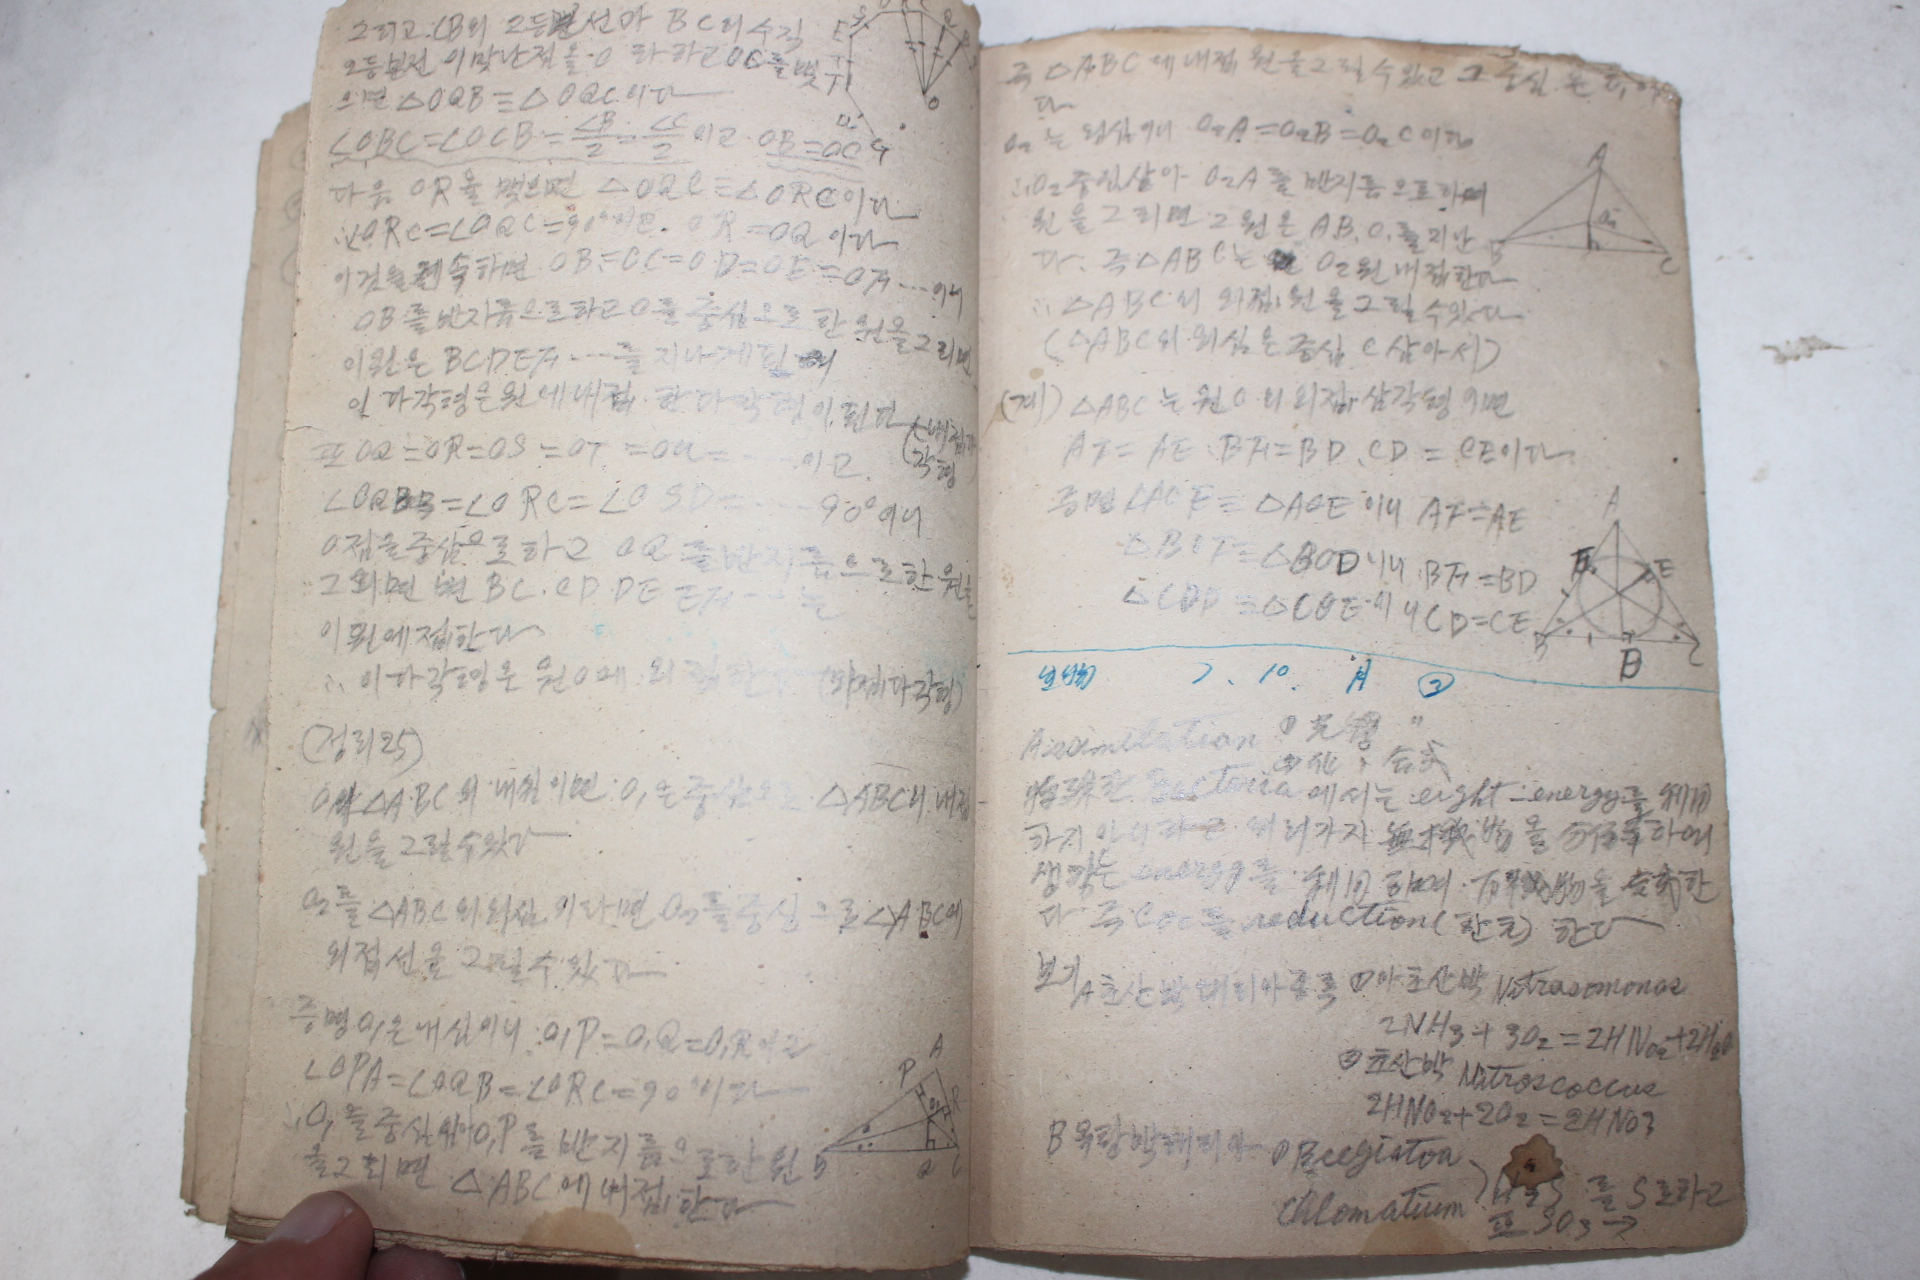 그리고 ∠B의 2등분선과 BC의 수직
2등분선이 맞난점을 O 라 하고 OC를 맺
으면 △OQB≡△OQC이다
∠OBC=∠OCB=∠B/2=∠C/2 이고 OB=OC
다음 OR을 맺으면 △OQC≡△ORC이다
∴∠ORC=∠OQC=90°이고. OR=OQ 이다
이것을 계속하면 OB=OC=OD=OE=OF……이니
OB를 반지름으로하고 O를 중심으로 한 원을 그리면
이원은 BCDEF……를 지나게된
이 다각형은 원에 내접 한다각형이 된다 (내접다각형
또 OQ=OR=OS=OT=OU=……이고.
∠OQB=∠ORC=∠OSD=……90°이니
O점을 중심으로 하고 OQ를 반지름으로한 원을
그리면 변 BC.CD.DE EF……는
이원에 접한다
∴ 이 다각형은 원O에 외접한 (외접다각형)
(정리25)
O₁가 △ABC의 내심이면 O₁은 중심으로 △ABC의 내접
원을 그릴수있다
O₂를 △ABC의외심 이라면 O₂를 중심으로 △ABC에
외접선을 그릴수있다
증명 O₁은 내심이니 O₁P=O₁Q=O₁R이고
∠OPA=∠OQB=∠ORC=90°이다
∴O₁을 중심삼아O₁P를 반지름으로한 원
을그리면 △ABC에 내접한다
즉 △ABC에 내접 원을그릴수있고 그 중심은
다
O₂는 외심이니 O₂A=O₂B=O₂C이다
∴O₂ 중심삼아 O₂A를 반지름으로하여
원을 그리면 그 원은 A.B.C.를지난
다. 즉 △ABC는 O₂원 내접한다
∴ △ABC의 외접원을 그릴수있다
(△ABC의 외심을 중심 C 삼아서)
(계) △ABC는 원O의 외접삼각형이면
AF=AE.BF=BD.CD=CE이다
증명 △AOF≡△AOE이니 AF=AE
△BOF≡△BOD이니 BF=BD
△COD≡△COE이니 CD=CE
7. 10. A ②
Assimilation ①光
②化 合成
特殊한 Bacteria에서는 light energy를 利用
하지 아니하고 여러가지 無機物을 하여
생기는 energy를 利用하며 有機物을 合成한
다 즉 CO₂를 reduction(환원) 한다
보기 A초산박테리아 종류 ①아초산박 Nitrosomonas
2NH₃+3O₂=2HNO₂+2H₂O
②초산박 Nitrosococcus
2HNO₂+2O₂=2HNO₃
B 유황박테리아 ①Beegiatoa
chlomatium
H₂S를 S로하고
또 SO₃→